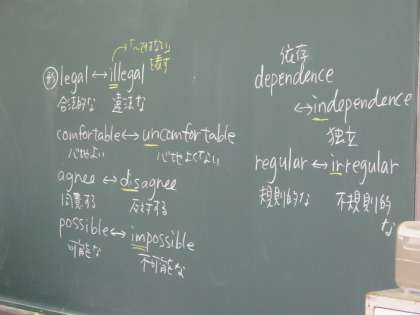 「〜ではない」
を表す
例 legal ↔ illegal
合法的な 違法な
comfortable ↔ uncomfortable
心地よい 心地よくない
agree ↔ disagree
同意する 反対する
possible ↔ impossible
可能な 不可能な
依存
dependence
↔ independence
独立
regular ↔ irregular
規則的な 不規則的
な